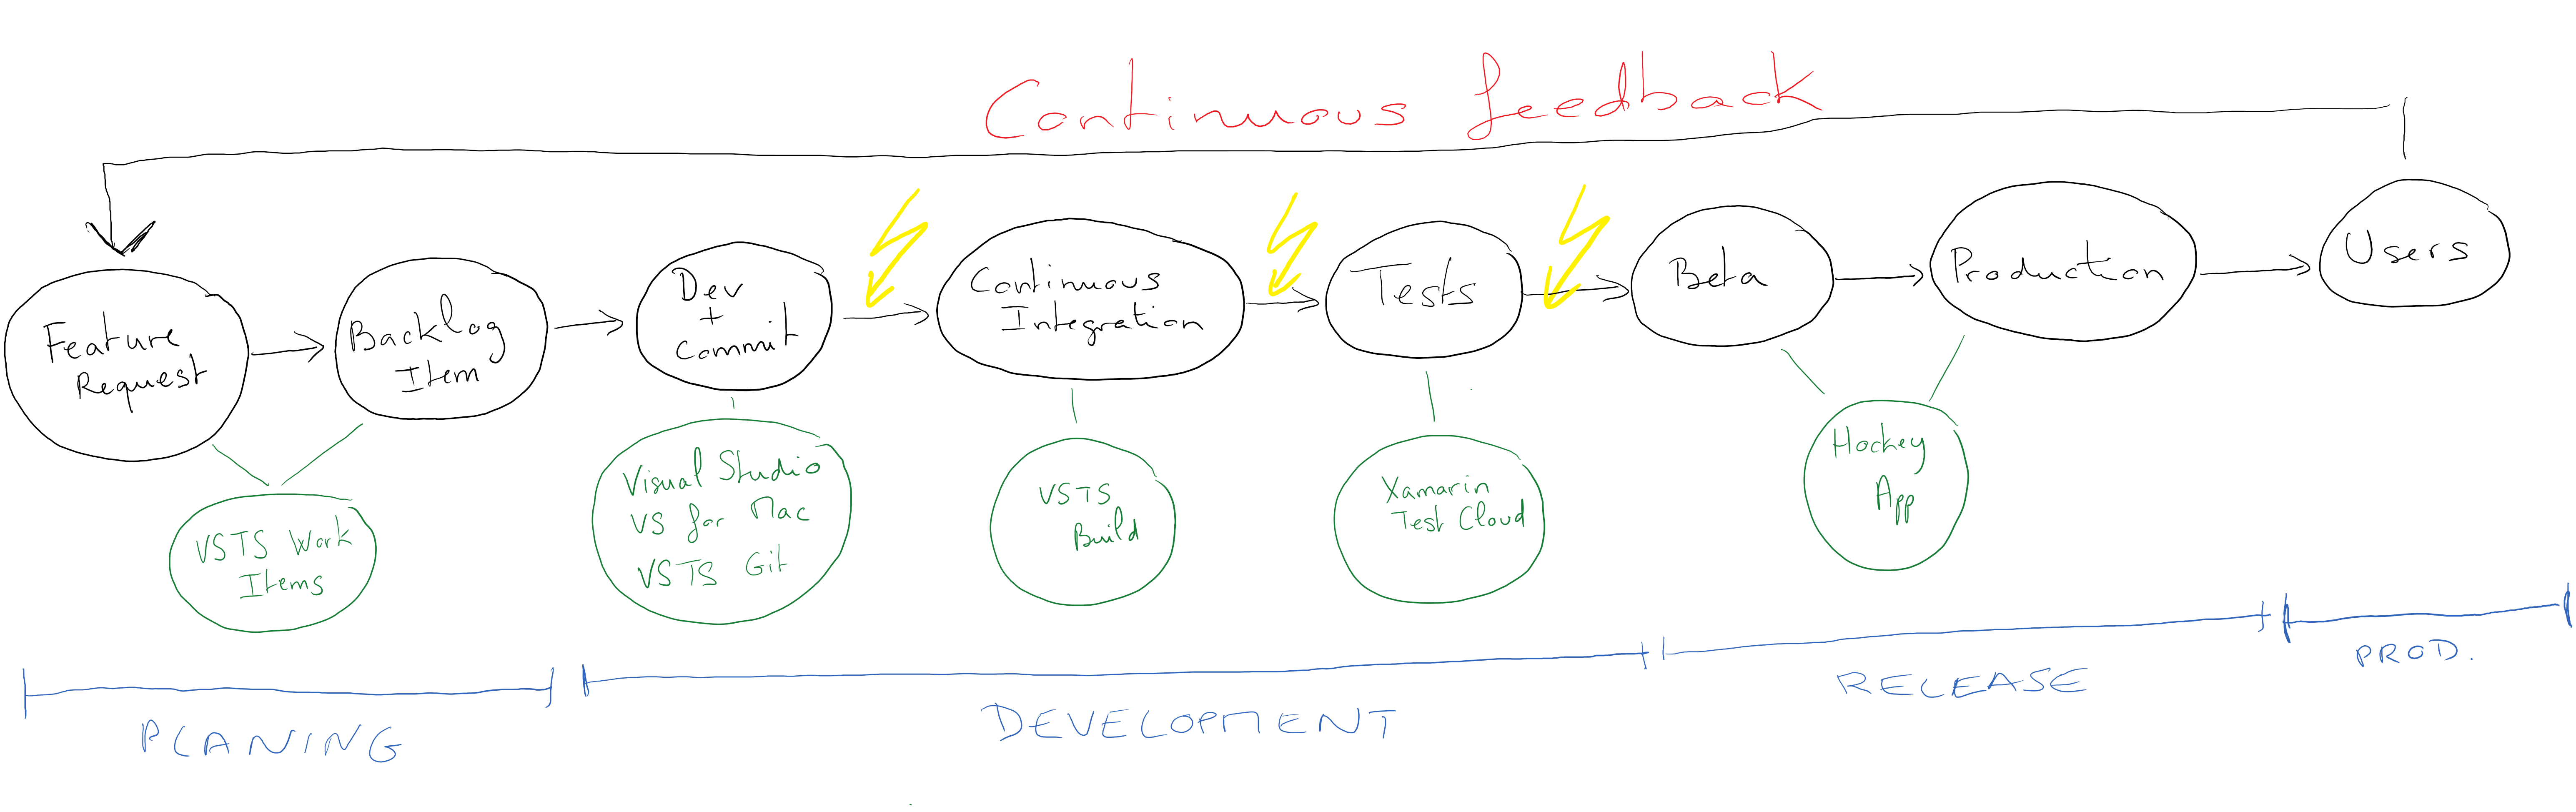 Continuous feedback
Feature
Request
Backlog
Item
Dev
+
Commit
Continuous
Integration
Tests
Beta
Production
Users
VSTS Work
Items
Visual Studio
VS for Mac
VSTS Git
VSTS
Build
Xamarin
Test Cloud
Hockey
App
PLANING
DEVELOPMENT
RELEASE
PROD.